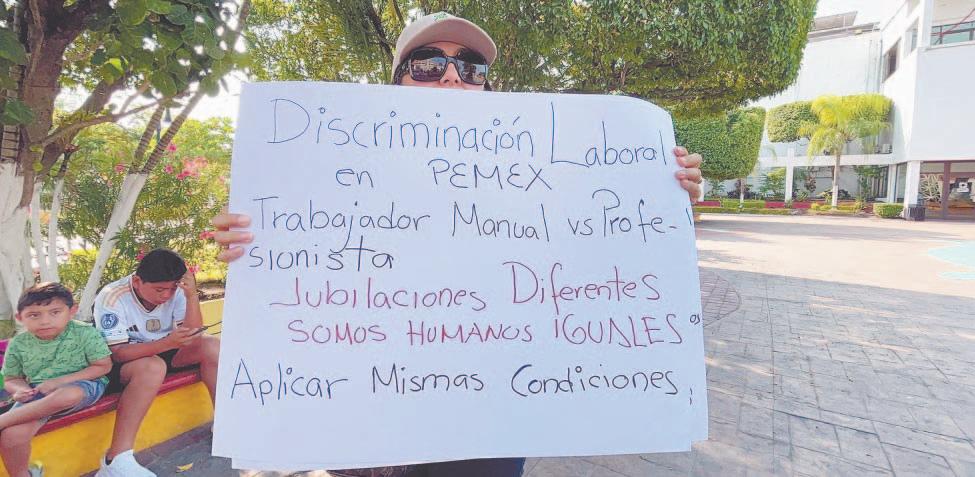 Discriminación Laboral
en PEMEX
Trabajador Manual vs Profe-
sionista
Jubilaciones Diferentes
SOMOS HUMANOS IGUALES
Aplicar Mismas Condiciones